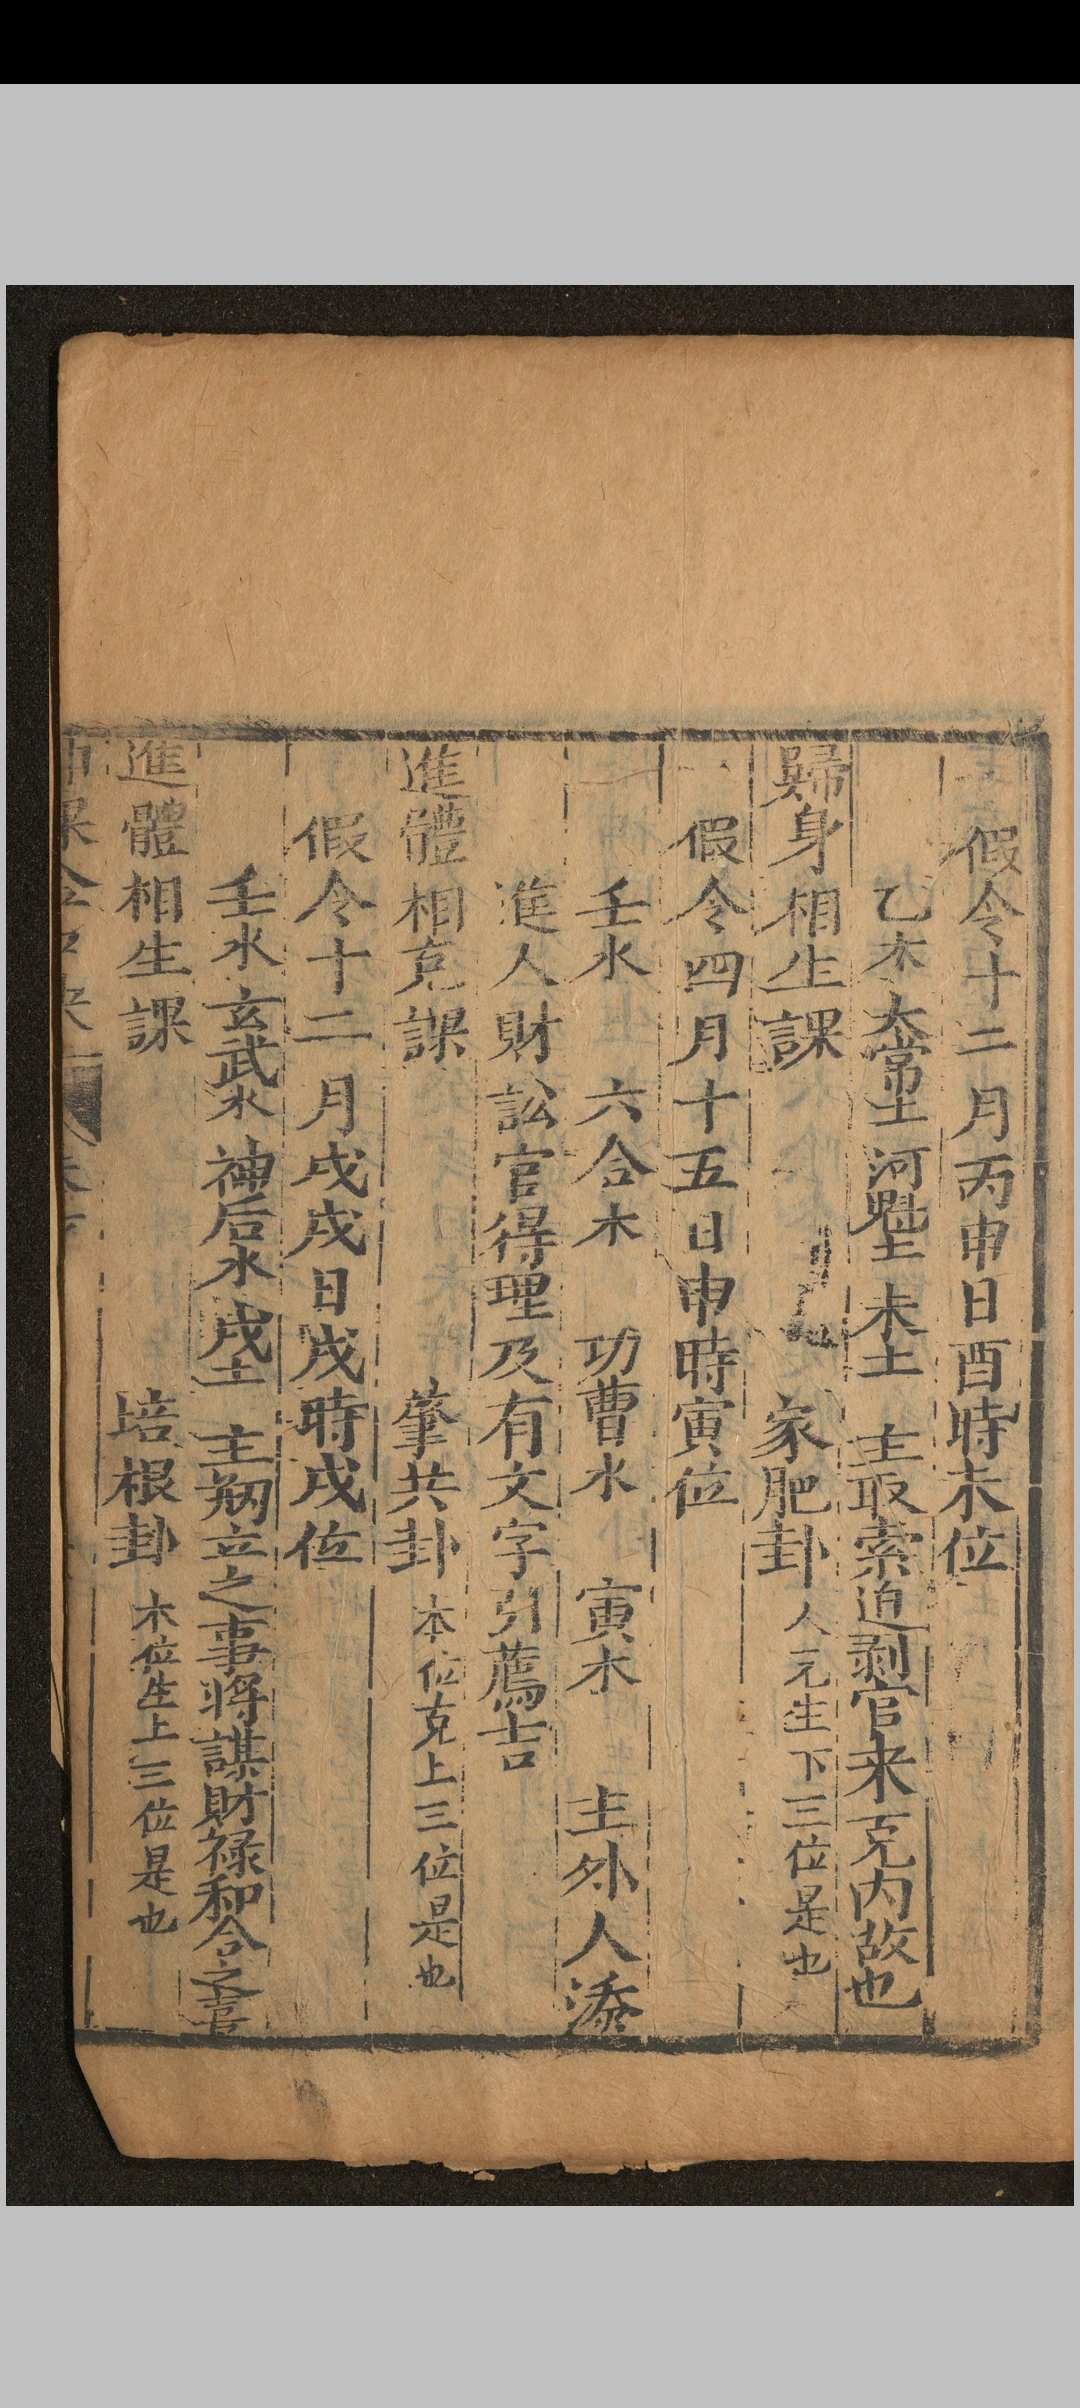 假令十二月丙申日酉時未位
乙木 太常土 河魁土 未土 主取索迫剥官来克内故也
歸身相生課 家肥卦 人元生下三位是也
假令四月十五日申時寅位
壬水 六合木 功曹水 寅木 主外人添
進人財訟官得理及有文字引薦吉
進體相克課 肇共卦 本位克上三位是也
假令十二月戌戌日戌時戌位
壬水 玄武水 神后水 戌土 主剏立之事將謀財禄和合之喜
進體相生課 培根卦 木位生上三位是也
課金口訣